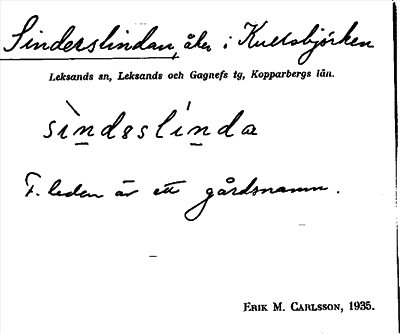 Sinderslindan, åker i Kullsbjörken
Leksands sn, Leksands och Gagnefs tg, Kopparbergs län.
sìndəslínda
F. leden är ett gårdsnamn.
ERIK M. CARLSSON, 1935.